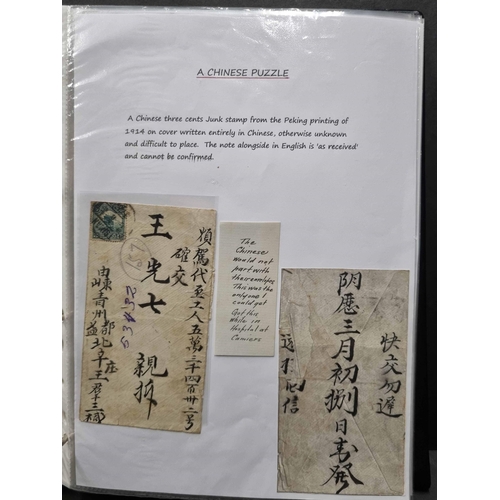 A CHINESE PUZZLE
A Chinese three cents Junk stamp from the Peking printing of
1914 on cover written entirely in Chinese, otherwise unknown
and difficult to place. The note alongside in English is 'as received'
and cannot be confirmed.
煩駕代至工人五萬三千四百卅二號
確交
王光七 親拆
53432
山東青州益都北辛庄王
The
Chinese
Would not
part with
their envelopes
This was the
only one I
could get
Got this
While in
Hospital at
Camiers
快交勿遲
陰歷三月初捌日吉發
信